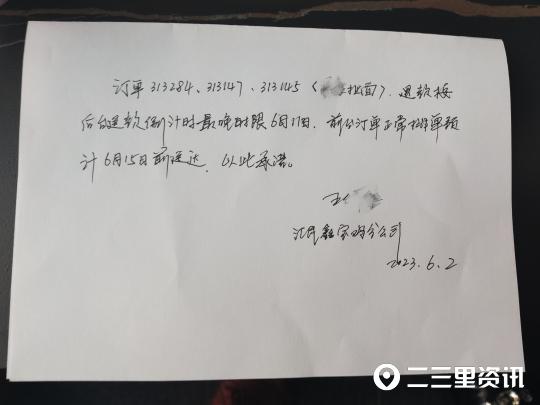 订单 313284、313147、313145（ 投面）.退款按
后台退款倒计时最晚时限6月17日. 前台订单正常排单预
计6月15日前送达，以此承诺。
王
家 分公司
2023.6.2
二三里资讯